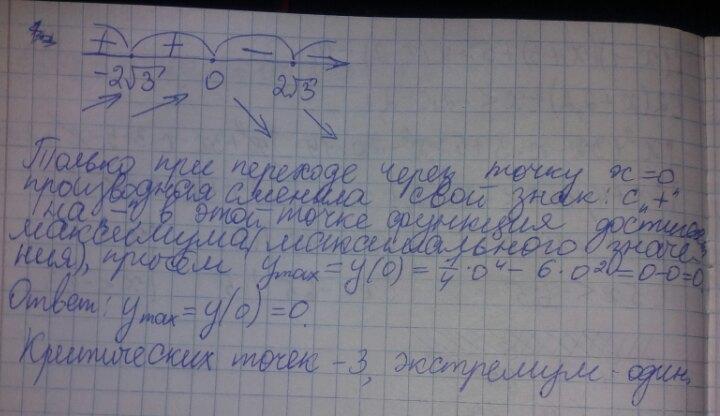 + + −
-2√3 0 2√3
Только при переходе через точку x=0
производная сменила свой знак: с "+"
на "-" в этой точке функция достигает
максимума (максимального значе-
ния), причем y max = y(0) = 1/4 · 0⁴ - 6 · 0² = 0-0=0
Ответ: y max = y(0) = 0.
Критических точек - 3, экстремум - один.